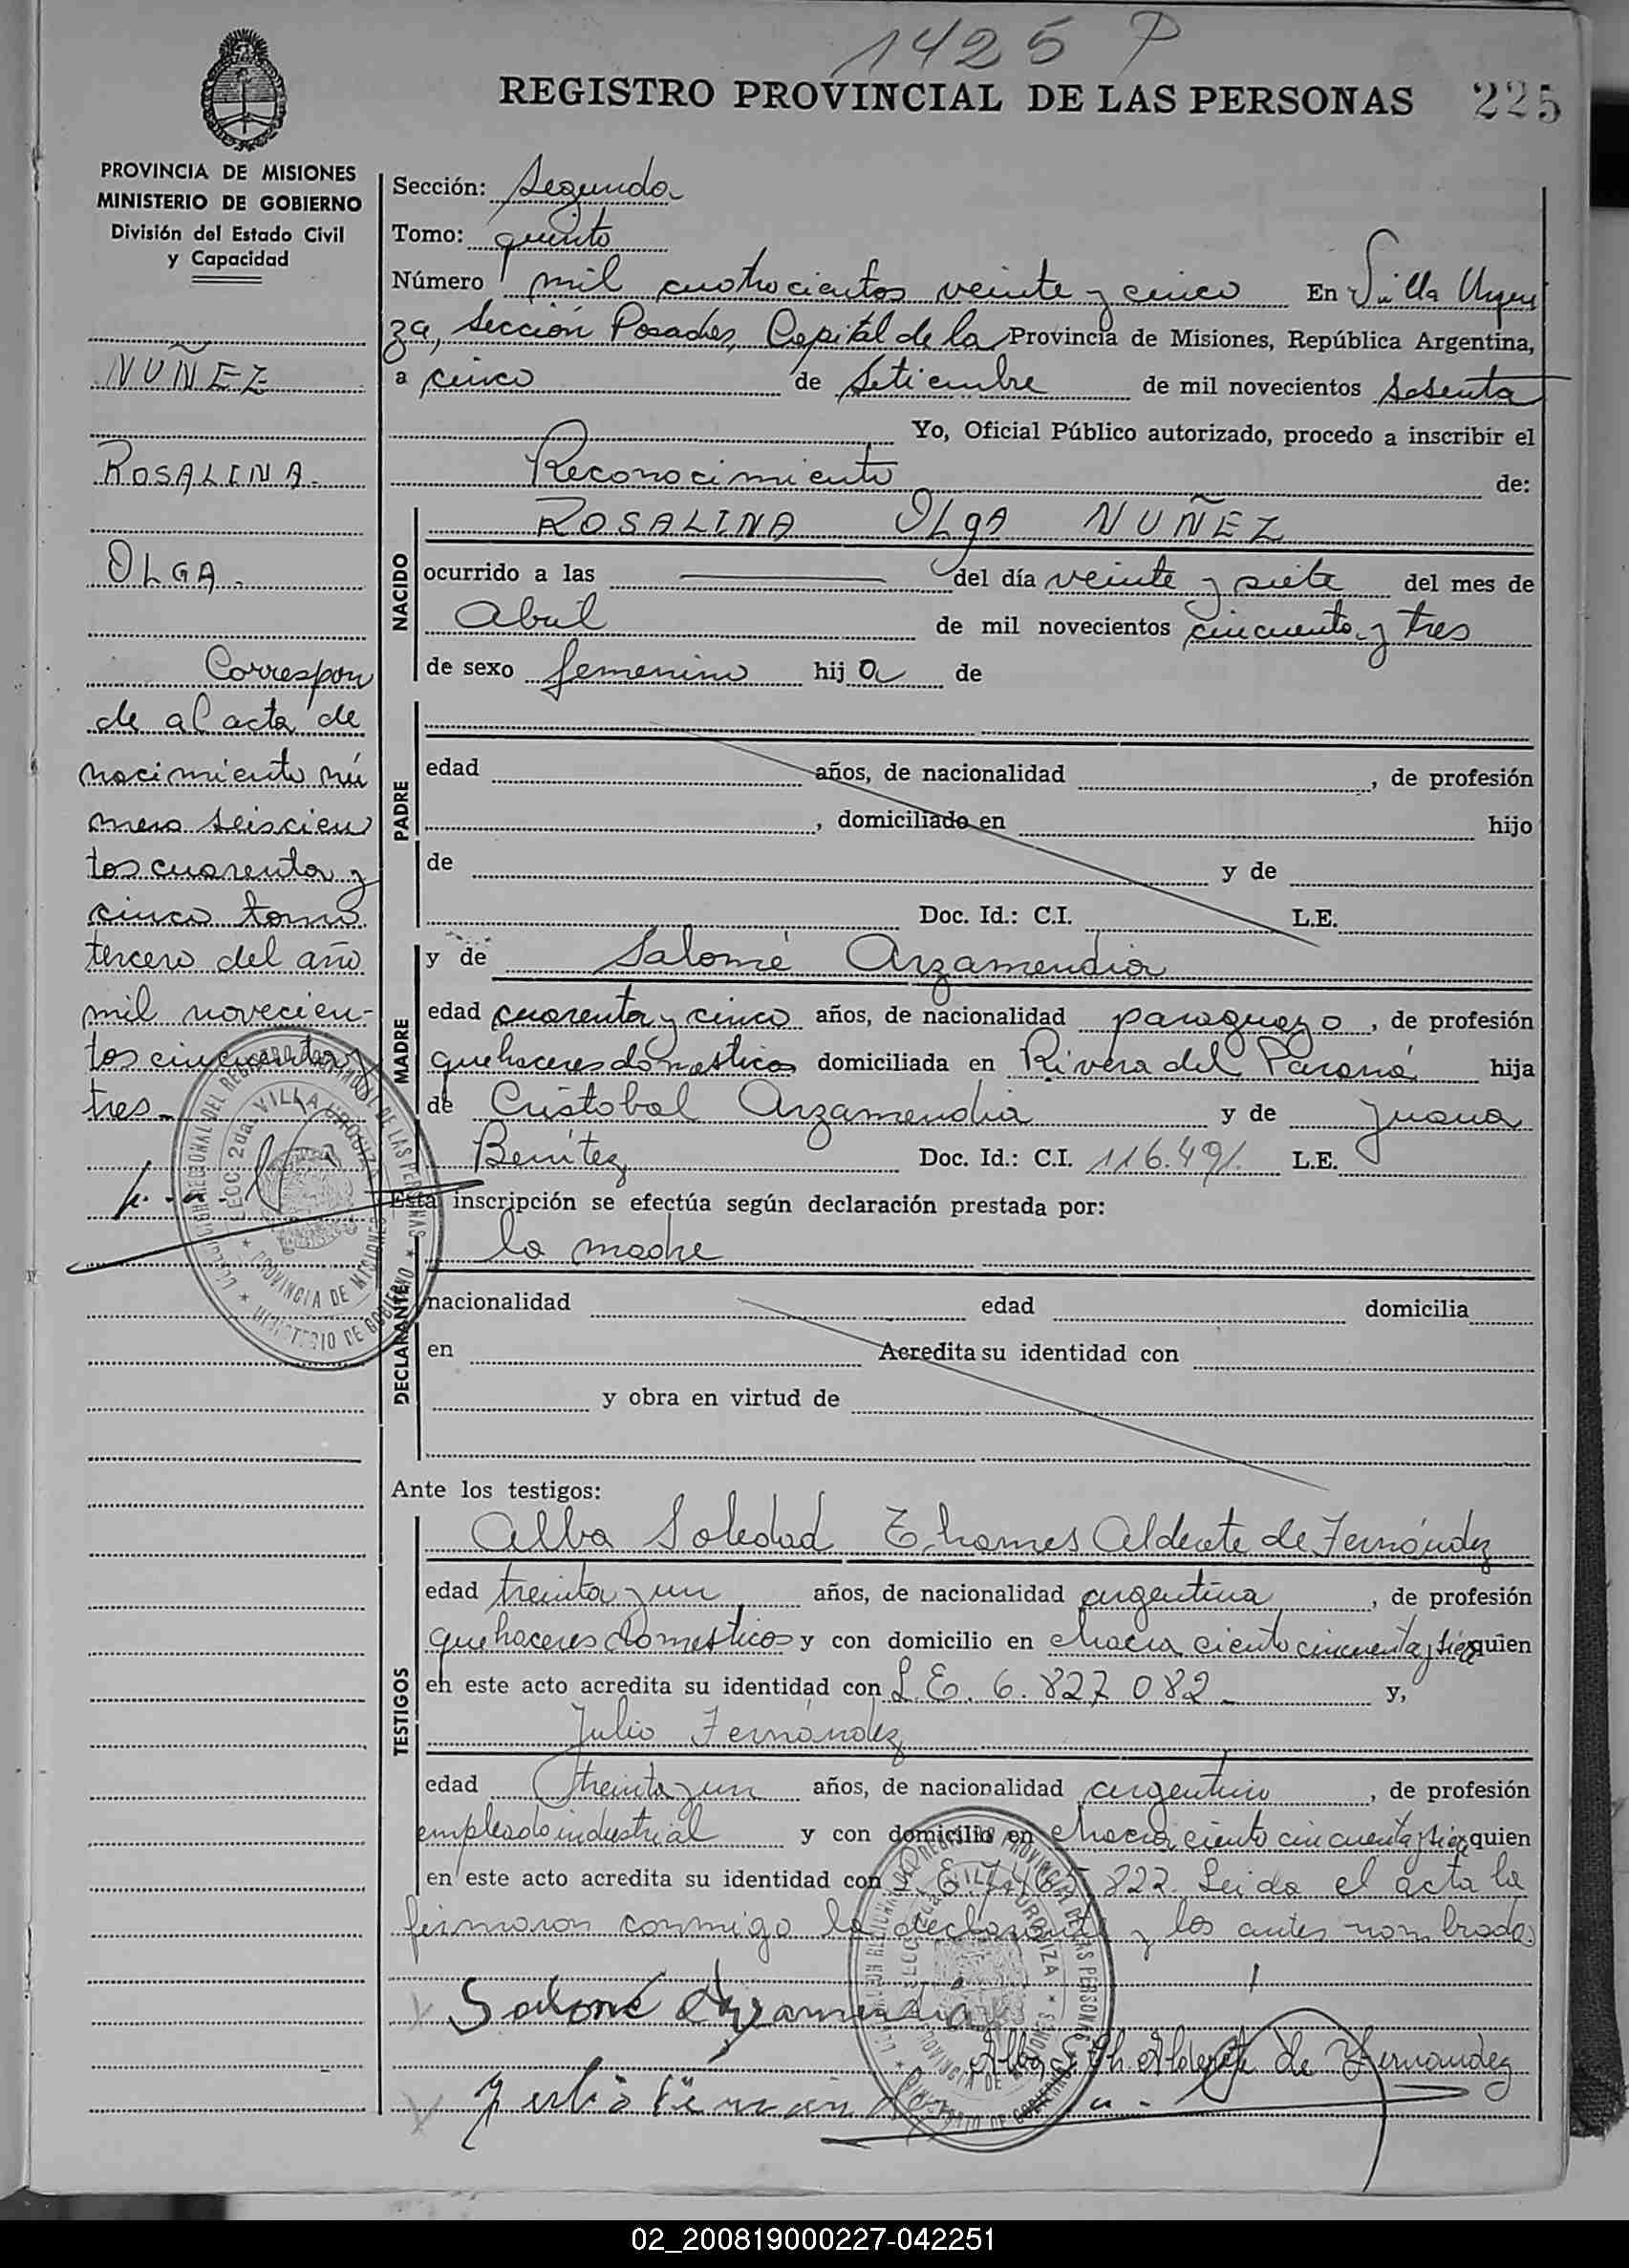 1425 P
REGISTRO PROVINCIAL DE LAS PERSONAS 225
PROVINCIA DE MISIONES
MINISTERIO DE GOBIERNO
División del Estado Civil
y Capacidad
NUÑEZ
ROSALINA.
OLGA.
Correspon
de al acta de
nacimiento nú
mero seiscien
tos cuarenta y
cinco tomo
tercero del año
mil novecien-
tos cincuenta y
tres
Sección: Segunda
Tomo: quinto
Número mil cuatrocientos veinte y cinco En Villa Urqui
za, Sección Posadas, Capital de la Provincia de Misiones, República Argentina,
a cinco de Setiembre de mil novecientos sesenta
Yo, Oficial Público autorizado, procedo a inscribir el
Reconocimiento de:
NACIDO
ROSALINA OLgA NUÑEZ
ocurrido a las del día veinte y siete del mes de
Abril de mil novecientos cincuenta y tres
de sexo femenino hija de
PADRE
edad años, de nacionalidad , de profesión
, domiciliado en hijo
de y de
Doc. Id.: C.I. L.E.
MADRE
y de Salomé Arzamendia
edad cuarenta y cinco años, de nacionalidad paraguaya, de profesión
quehaceres domesticos domiciliada en Rivera del Paraná hija
de Cristobal Arzamendia y de Juana
Benítez Doc. Id.: C.I. 116.491. L.E.
Esta inscripción se efectúa según declaración prestada por:
DECLARANTE
la madre
nacionalidad edad domicilia
en Acredita su identidad con
y obra en virtud de
Ante los testigos:
TESTIGOS
Alba Soledad Ehames Alderete de Fernández
edad treinta y un años, de nacionalidad argentina, de profesión
quehaceres domesticos y con domicilio en chacra ciento cincuenta y siete quien
en este acto acredita su identidad con L.E. 6.827.082 y,
Julio Fernández
edad treinta y un años, de nacionalidad argentino, de profesión
empleado industrial y con domicilio en chacra ciento cincuenta y siete quien
en este acto acredita su identidad con 822. Leida el acta la
firmaron conmigo la declarante y los antes nombrados
Salomé Arzamendia
Alba S. Eh. Alderete de Fernandez
Julio Fernández
02_200819000227-042251